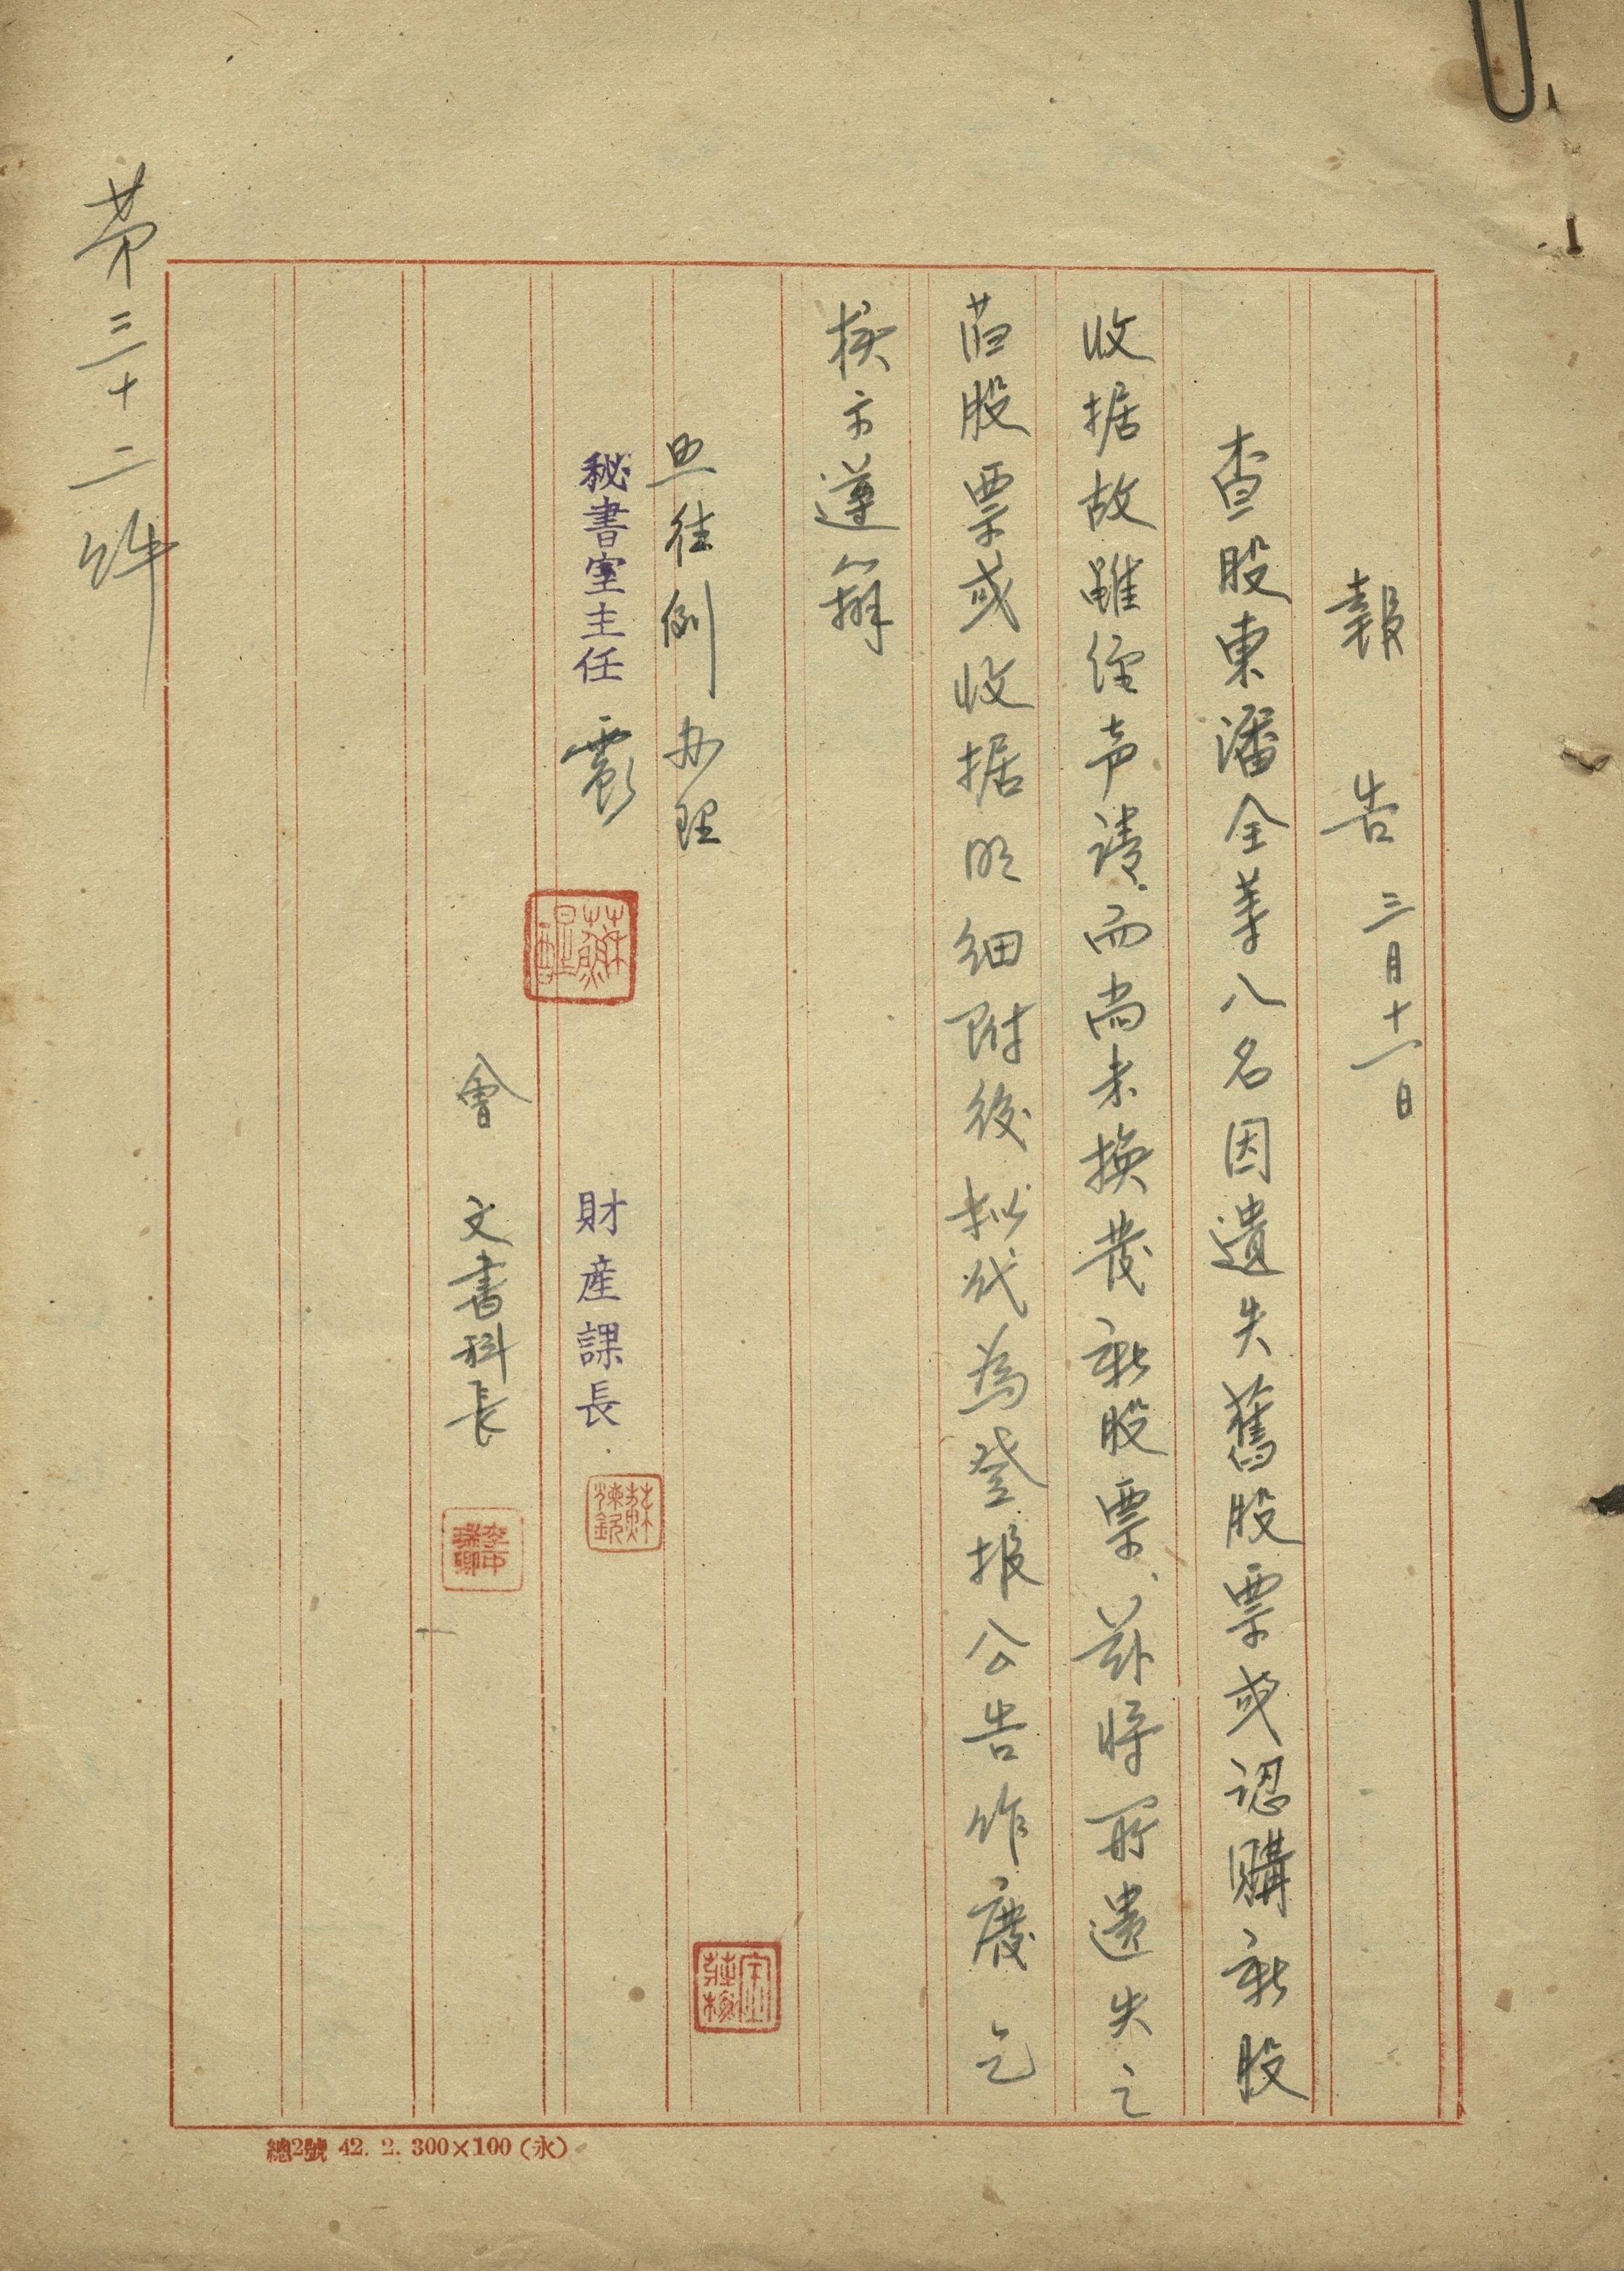 報告 三月十一日
查股東潘全等八名因遺失舊股票或認購新股
收据故雖經声請、而尚未換發新股票、茲將所遺失之
旧股票或收据明細附後拟代為登报公告作廢 乞
核示遵辦
照往例办理
秘書室主任 震
蘇醒
財産課長
會 文書科長
第三十二件
總2號 42. 2. 300×100（永）